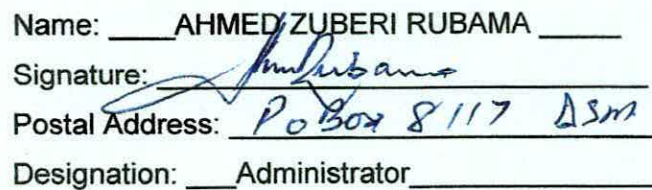 Name: ____AHMED ZUBERI RUBAMA _____
Signature: AhmRubama
Postal Address: PoBox 8117 DSM
Designation: ___Administrator